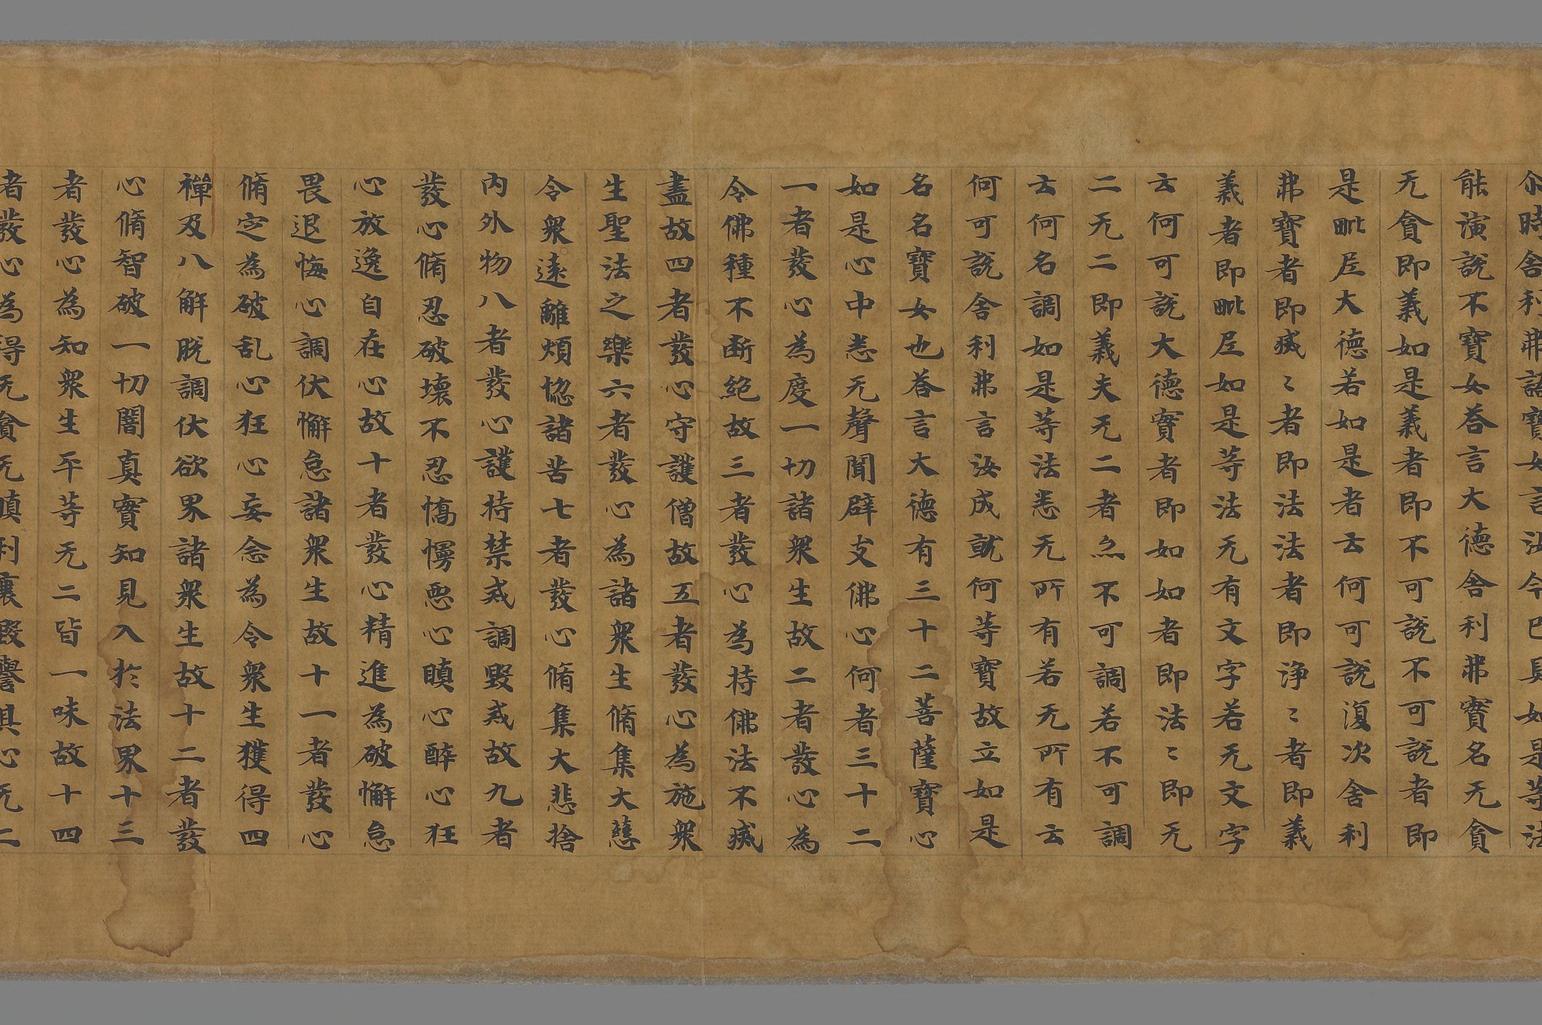 尒時舍利弗語寶女言汝今已具如是等法
能演說不寶女荅言大德舍利弗寶名无貪
无貪即義如是義者即不可說不可說者即
是毗𡰱大德若如是者云何可說復次舍利
弗寶者即滅〻者即法法者即淨〻者即義
義者即毗𡰱如是等法无有文字若无文字
云何可說大德寶者即如如者即法〻即无
二无二即義夫无二者亦不可調若不可調
云何名調如是等法悉无所有若无所有云
何可說舍利弗言汝成就何等寶故立如是
名名寶女也荅言大德有三十二菩薩寶心
如是心中悉无聲聞辟支佛心何者三十二
一者發心為度一切諸衆生故二者發心為
令佛種不断絶故三者發心為持佛法不滅
盡故四者發心守護僧故五者發心為施衆
生聖法之樂六者發心為諸衆生脩集大慈
令衆遠離煩惱諸苦七者發心脩集大悲捨
內外物八者發心護持禁戒調毀戒故九者
發心脩忍破壞不忍憍慢惡心瞋心醉心狂
心放逸自在心故十者發心精進為破懈怠
畏退悔心調伏懈怠諸衆生故十一者發心
脩定為破乱心狂心妄念為令衆生獲得四
禪及八解脫調伏欲界諸衆生故十二者發
心脩智破一切闇真實知見入於法界十三
者發心為知衆生平等无二皆一味故十四
者發心為得无貪无瞋利襄毀譽其心无二